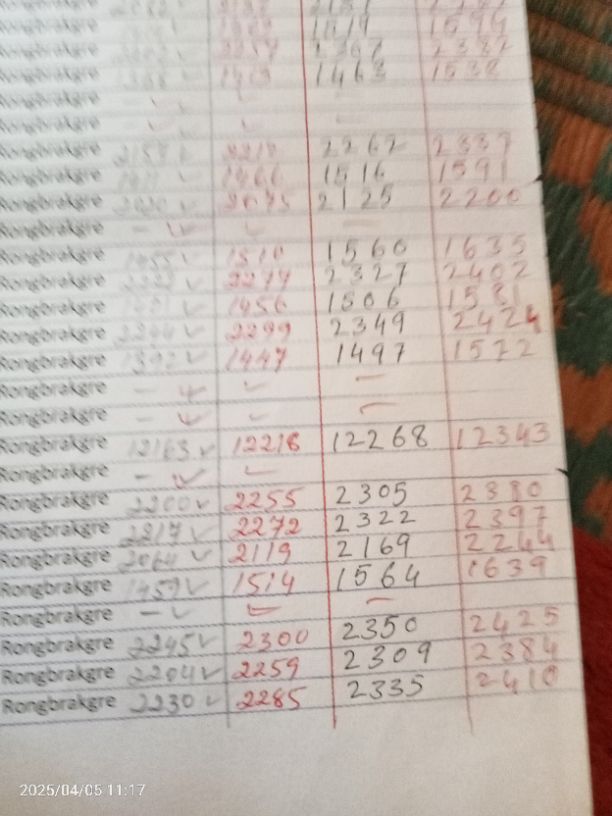 Rongbrakgre 1463 1538
Rongbrakgre — ✓ ✓
Rongbrakgre — ✓ ✓
Rongbrakgre 2262 2337
Rongbrakgre 1466 1516 1591
Rongbrakgre 2075 2125 2200
Rongbrakgre — ✓ ✓ —
Rongbrakgre 1455 ✓ 1510 1560 1635
Rongbrakgre 2277 2327 2402
Rongbrakgre 1456 1506 1581
Rongbrakgre 2244 ✓ 2299 2349 2424
Rongbrakgre 1392 ✓ 1447 1497 1572
Rongbrakgre — ✓ ✓ —
Rongbrakgre — ✓ ✓ —
Rongbrakgre 12163 ✓ 12218 12268 12343
Rongbrakgre — ✓ ✓
Rongbrakgre 2200 ✓ 2255 2305 2380
Rongbrakgre 2217 ✓ 2272 2322 2397
Rongbrakgre 2064 ✓ 2119 2169 2244
Rongbrakgre 1459 ✓ 1514 1564 1639
Rongbrakgre — ✓ ✓ —
Rongbrakgre 2245 ✓ 2300 2350 2425
Rongbrakgre 2204 ✓ 2259 2309 2384
Rongbrakgre 2230 ✓ 2285 2335 2410
2025/04/05 11:17